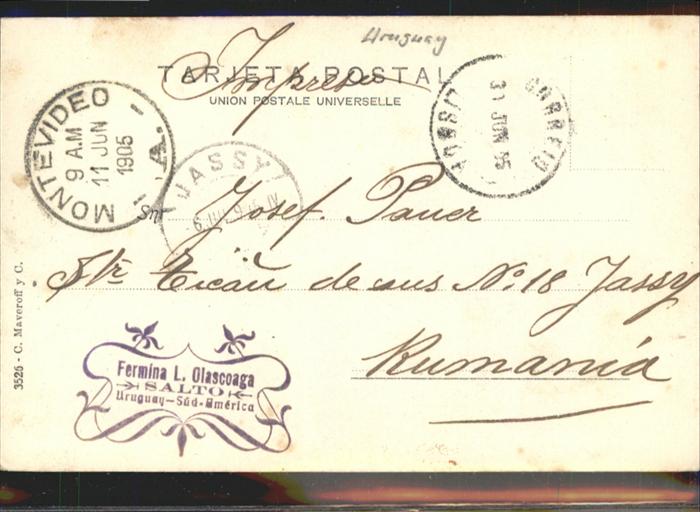 Uruguay
TARJETA POSTAL
Impreso
UNION POSTALE UNIVERSELLE
MONTEVIDEO
9 A.M
11 JUN
1905
A.
CORREIO
31 JUN 05
JASSY
Sr.
Josef Pauer
Str Ticău de sus No. 18 Jassy
Rumania
3526 - C. Maveroff y C.
Fermina L. Olascoaga
SALTO
Uruguay-Súd-América